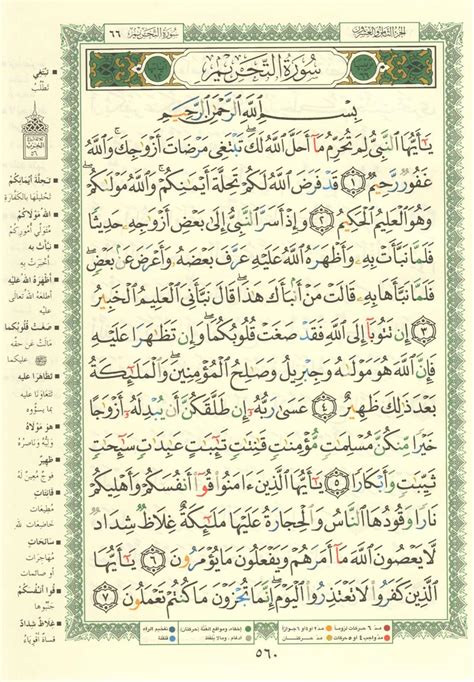 الجزء الثامن والعشرون
سورة التحريم ٦٦
سُورَةُ التَّحْرِيمِ
بِسْمِ ٱللَّهِ ٱلرَّحْمَٰنِ ٱلرَّحِيمِ
يَٰٓأَيُّهَا ٱلنَّبِىُّ لِمَ تُحَرِّمُ مَآ أَحَلَّ ٱللَّهُ لَكَ تَبْتَغِى مَرْضَاتَ أَزْوَٰجِكَ وَٱللَّهُ
غَفُورٌ رَّحِيمٌ ١ قَدْ فَرَضَ ٱللَّهُ لَكُمْ تَحِلَّةَ أَيْمَٰنِكُمْ وَٱللَّهُ مَوْلَىٰكُمْ
وَهُوَ ٱلْعَلِيمُ ٱلْحَكِيمُ ٢ وَإِذْ أَسَرَّ ٱلنَّبِىُّ إِلَىٰ بَعْضِ أَزْوَٰجِهِۦ حَدِيثًا
فَلَمَّا نَبَّأَتْ بِهِۦ وَأَظْهَرَهُ ٱللَّهُ عَلَيْهِ عَرَّفَ بَعْضَهُۥ وَأَعْرَضَ عَنۢ بَعْضٍ
فَلَمَّا نَبَّأَهَا بِهِۦ قَالَتْ مَنْ أَنۢبَأَكَ هَٰذَا قَالَ نَبَّأَنِىَ ٱلْعَلِيمُ ٱلْخَبِيرُ
٣ إِن تَتُوبَآ إِلَى ٱللَّهِ فَقَدْ صَغَتْ قُلُوبُكُمَا وَإِن تَظَٰهَرَا عَلَيْهِ
فَإِنَّ ٱللَّهَ هُوَ مَوْلَىٰهُ وَجِبْرِيلُ وَصَٰلِحُ ٱلْمُؤْمِنِينَ وَٱلْمَلَٰٓئِكَةُ
بَعْدَ ذَٰلِكَ ظَهِيرٌ ٤ عَسَىٰ رَبُّهُۥٓ إِن طَلَّقَكُنَّ أَن يُبْدِلَهُۥٓ أَزْوَٰجًا
خَيْرًا مِّنكُنَّ مُسْلِمَٰتٍ مُّؤْمِنَٰتٍ قَٰنِتَٰتٍ تَٰٓئِبَٰتٍ عَٰبِدَٰتٍ سَٰٓئِحَٰتٍ
ثَيِّبَٰتٍ وَأَبْكَارًا ٥ يَٰٓأَيُّهَا ٱلَّذِينَ ءَامَنُوا۟ قُوٓا۟ أَنفُسَكُمْ وَأَهْلِيكُمْ
نَارًا وَقُودُهَا ٱلنَّاسُ وَٱلْحِجَارَةُ عَلَيْهَا مَلَٰٓئِكَةٌ غِلَاظٌ شِدَادٌ
لَّا يَعْصُونَ ٱللَّهَ مَآ أَمَرَهُمْ وَيَفْعَلُونَ مَا يُؤْمَرُونَ ٦ يَٰٓأَيُّهَا
ٱلَّذِينَ كَفَرُوا۟ لَا تَعْتَذِرُوا۟ ٱلْيَوْمَ إِنَّمَا تُجْزَوْنَ مَا كُنتُمْ تَعْمَلُونَ ٧
تَبْتَغِي
تَطلُب
تَحِلَّةَ أَيْمَانِكُمْ
تحليلها بالكفارة
اللهُ مَوْلَاكُمْ
مُتَوَلِّي أُمُورِكُم
نَبَّأَتْ بِهِ
أَخْبَرَتْ بِهِ
أَظْهَرَهُ اللهُ عَلَيْهِ
أَطْلَعَهُ الله تعالى عليه
صَغَتْ قُلُوبُكُمَا
مَالَتْ عَن حقّه عليكما
تَظَاهَرَا عليه
تَتَعَاوَنَا عليه
بما يسوؤه
هو مَوْلَاهُ
وَلِيُّهُ وناصِرُه
ظَهِيرٌ
فوجٌ مُعِينٌ له
قَانِتَاتٍ
مُطِيعَات
خاضعات لله
سَائِحَاتٍ
مهاجرات
أو صائمات
قُوا أَنْفُسَكُمْ
جَنِّبُوها
غِلَاظٌ شِدَادٌ
قُساةٌ أقوياءُ
مدّ ٦ حركات لزوماً مدّ ٢ أو ٤ أو ٦ جوازاً إخفاء، ومواقع الغنّة (حركتان) تفخيم الراء
مدّ واجب ٤ أو ٥ حركات مدّ حركتان ادغام، وما لا يُلفظ قلقلة
٥٦٠